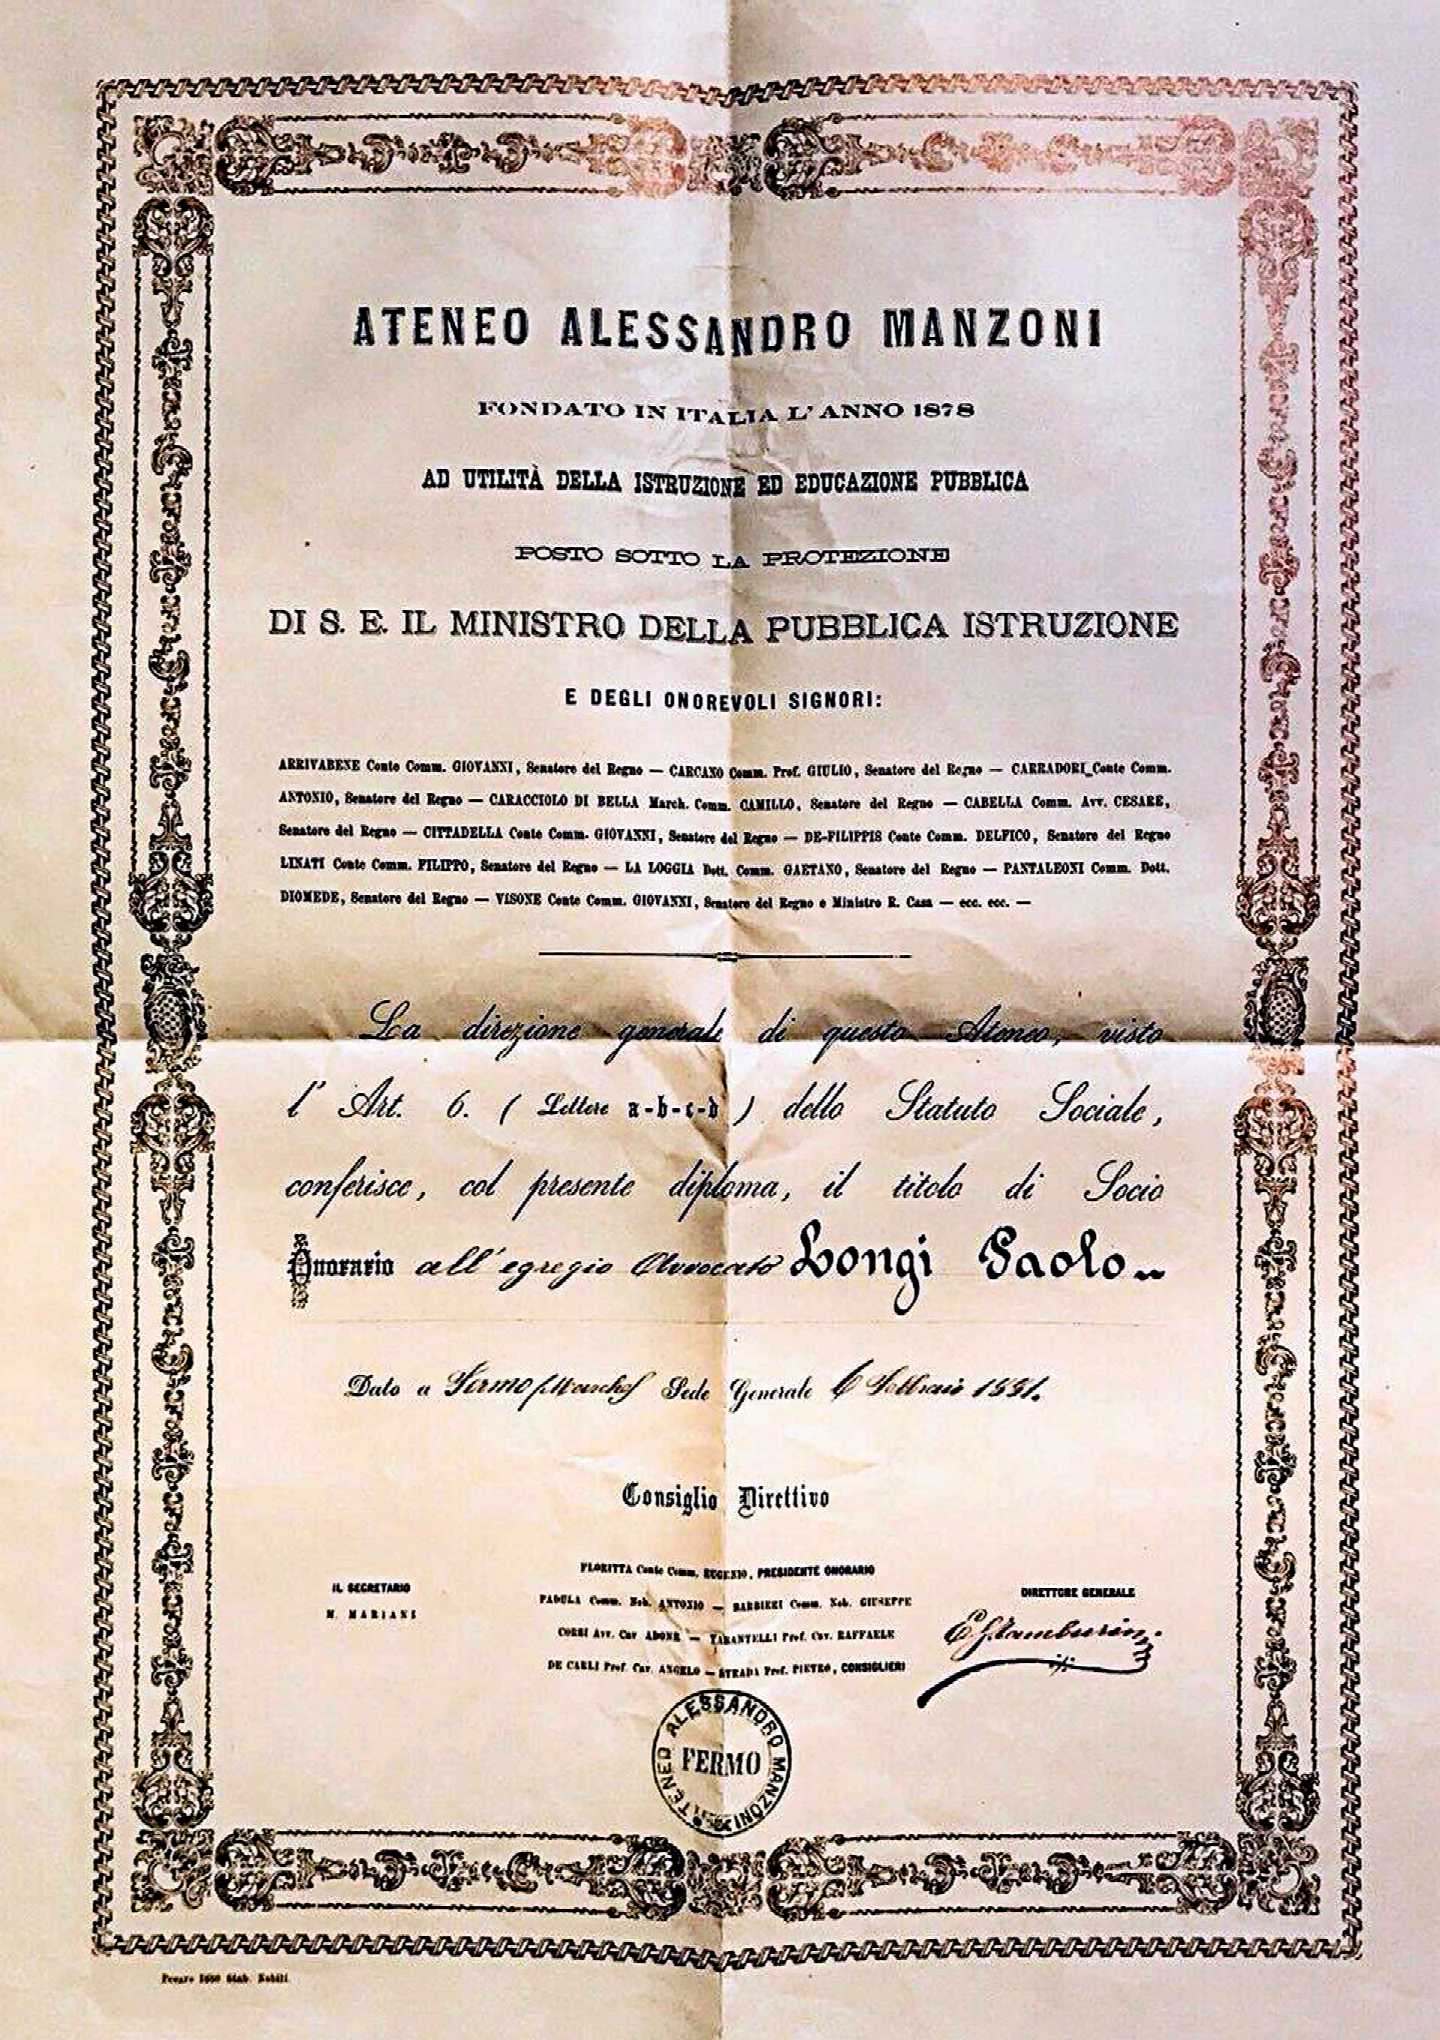 ATENEO ALESSANDRO MANZONI
FONDATO IN ITALIA L' ANNO 1878
AD UTILITÀ DELLA ISTRUZIONE ED EDUCAZIONE PUBBLICA
POSTO SOTTO LA PROTEZIONE
DI S. E. IL MINISTRO DELLA PUBBLICA ISTRUZIONE
E DEGLI ONOREVOLI SIGNORI:
ARRIVABENE Conte Comm. GIOVANNI, Senatore del Regno — CARCANO Comm. Prof. GIULIO, Senatore del Regno — CARRADORI Conte Comm.
ANTONIO, Senatore del Regno — CARACCIOLO DI BELLA March. Comm. CAMILLO, Senatore del Regno — CABELLA Comm. Avv. CESARE,
Senatore del Regno — CITTADELLA Conte Comm. GIOVANNI, Senatore del Regno — DE-FILIPPIS Conte Comm. DELFICO, Senatore del Regno
LINATI Conte Comm. FILIPPO, Senatore del Regno — LA LOGGIA Dott. Comm. GAETANO, Senatore del Regno — PANTALEONI Comm. Dott.
DIOMEDE, Senatore del Regno — VISONE Conte Comm. GIOVANNI, Senatore del Regno e Ministro R. Casa — ecc. ecc. —
La direzione generale di questo Ateneo, visto
l' Art. 6. ( Lettere a-b-c-d ) dello Statuto Sociale,
conferisce, col presente diploma, il titolo di Socio
Onorario all' egregio Avvocato Longi Paolo
Dato a Fermo (Marche) Sede Generale 6 Febbraio 1881.
Consiglio Direttivo
FLORITTA Conte Comm. EUGENIO, PRESIDENTE ONORARIO
PADULA Comm. Nob. ANTONIO — BARBIERI Comm. Nob. GIUSEPPE
CORSI Avv. Cav ADONE — TARANTELLI Prof. Cav. RAFFAELE
DE CARLI Prof. Cav. ANGELO — STRADA Prof. PIETRO, CONSIGLIERI
IL SECRETARIO
M. MARIANI
DIRETTORE GENERALE
E. G. Tamburini
ATENEO ALESSANDRO MANZONI
FERMO
Pesaro 1880 Stab. Nobili